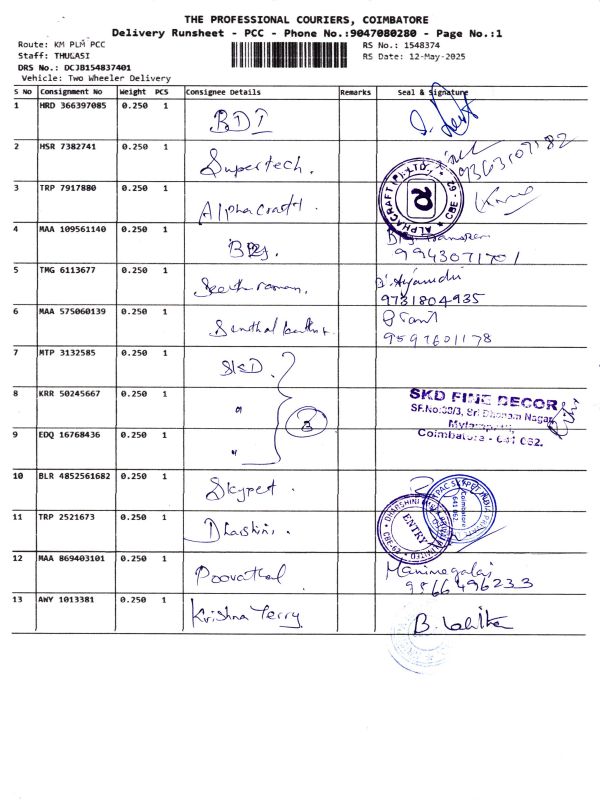 THE PROFESSIONAL COURIERS, COIMBATORE
Delivery Runsheet - PCC - Phone No.:9047080280 - Page No.:1
Route: KM PLM PCC
Staff: THULASI
DRS No.: DCJB154837401
Vehicle: Two Wheeler Delivery
RS No.: 1548374
RS Date: 12-May-2025
S No Consignment No Weight PCS Consignee Details Remarks Seal & Signature
1 HRD 366397085 0.250 1 BDI
2 HSR 7382741 0.250 1 Supertech. 9363107182
3 TRP 7917880 0.250 1 Alphacraft. ALPHACRAFT (P) LTD. CBE - 62
4 MAA 109561140 0.250 1 9943071701
5 TMG 6113677 0.250 1 9731804935
6 MAA 575060139 0.250 1 9597601178
7 MTP 3132585 0.250 1 SKD.
8 KRR 50245667 0.250 1 " 3 SKD FINE DECOR
SF.No:38/3, Sri Dhanam Nagar,
9 EDQ 16768436 0.250 1 "
Coimbatore - 641 062.
10 BLR 4852561682 0.250 1 Coimbatore 641 062
11 TRP 2521673 0.250 1 ENTRY
12 MAA 869403101 0.250 1 Poovathal Manimegalai
9566496233
13 AWY 1013381 0.250 1 Krishna Terry B. Lalitha